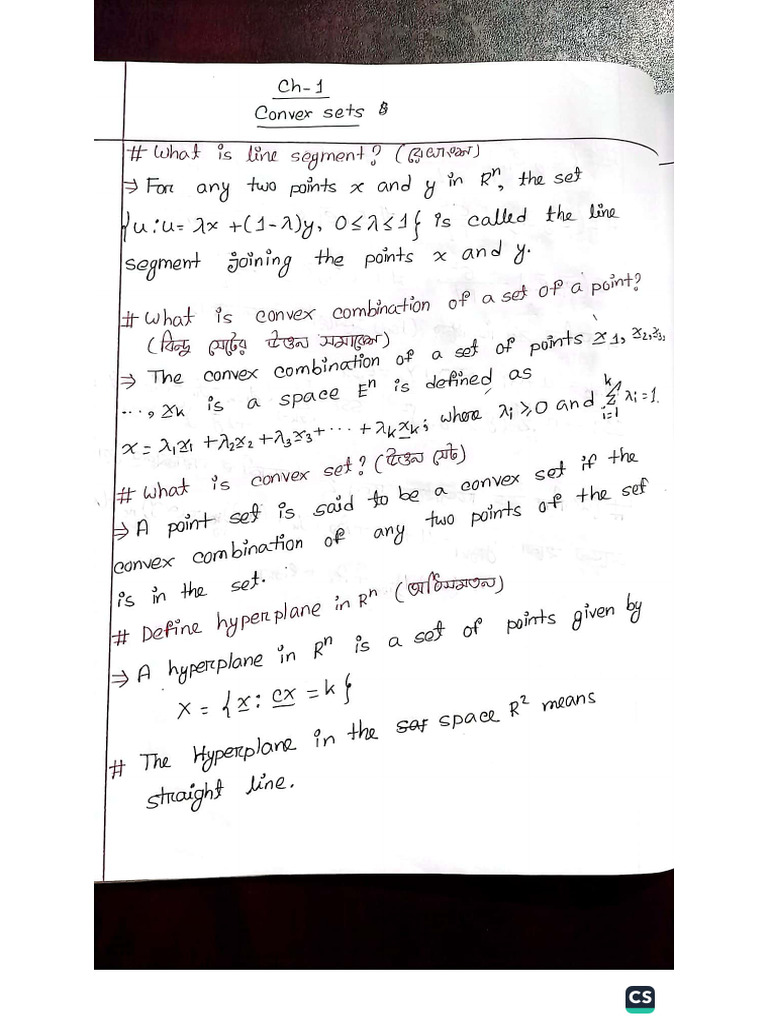 Ch-1
Convex sets
# What is line segment? (রেখাংশ)
⇒ For any two points x and y in Rⁿ, the set
{u : u = λx + (1-λ)y, 0 ≤ λ ≤ 1} is called the line
segment joining the points x and y.
# What is convex combination of a set of a point?
(বিন্দু সেটের উত্তল সমাবেশ)
⇒ The convex combination of a set of points x1, x2, x3,
..., xk is a space Eⁿ is defined as
x = λ1x1 + λ2x2 + λ3x3 + ... + λkxk; where λi ≥ 0 and k∑i=1 λi = 1.
# What is convex set? (উত্তল সেট)
⇒ A point set is said to be a convex set if the
convex combination of any two points of the set
is in the set.
# Define hyperplane in Rⁿ (অধিসমতল)
⇒ A hyperplane in Rⁿ is a set of points given by
X = {x : cx = k}
# The Hyperplane in the space R² means
straight line.
CS